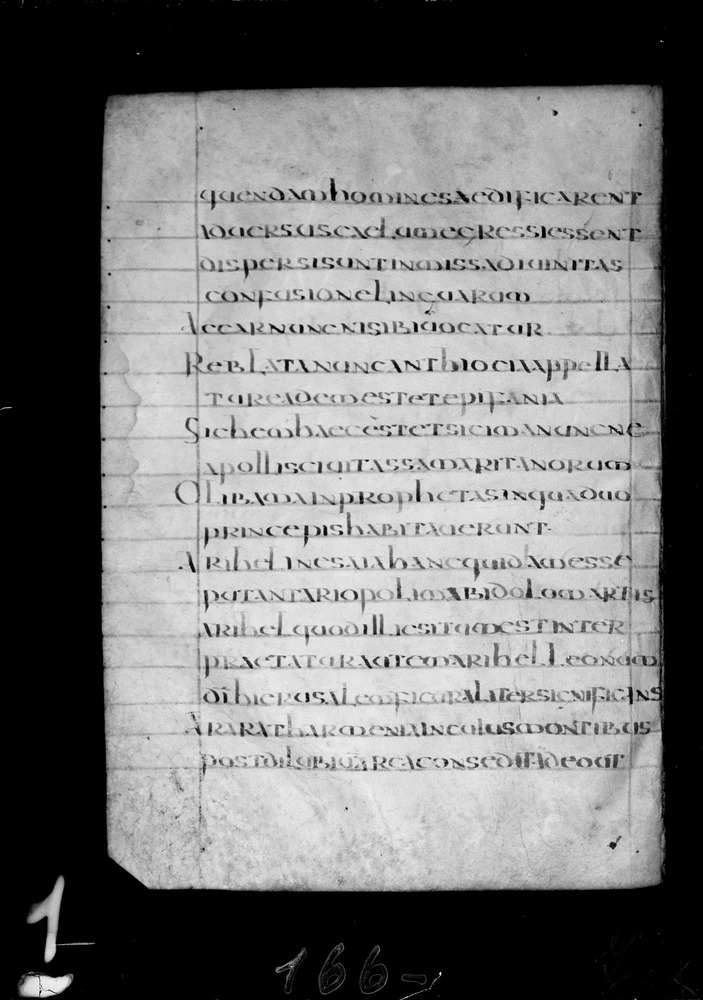 quendam homines aedificarent
aduersus caelum egressi essent
dispersi sunt inmissa diuinitas
confusione linguarum
Accar nunc nisibi uocatur
Reblata nunc anthiocia appella
tur eadem est et epifania
Sichem haec est et sicima nunc ne
apollis ciuitas samaritanorum
Olibama in prophetas in qua duo
princepis habitauerunt
Arihel in esaia hanc quidam esse
putant ariopolim ab idolum artis
arihel quod illic situm est inter
praetatur autem arihel leonem
di hierusalem figuraliter significans
Ararat harmenia incolus montibus
post dilubium area consedit adeo ut
1
166-